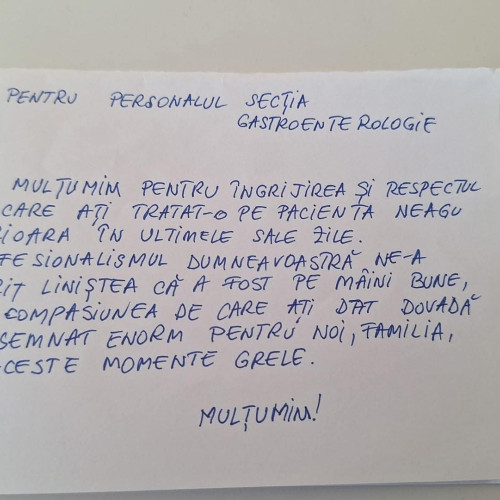 PENTRU PERSONALUL SECȚIA
GASTROENTEROLOGIE
MULȚUMIM PENTRU ÎNGRIJIREA ȘI RESPECTUL
CARE AȚI TRATAT-O PE PACIENTA NEAGU
IOARA ÎN ULTIMELE SALE ZILE.
FESIONALISMUL DUMNEAVOASTRĂ NE-A
RIT LINIȘTEA CĂ A FOST PE MÂINI BUNE,
COMPASIUNEA DE CARE AȚI DAT DOVADĂ
SEMNAT ENORM PENTRU NOI, FAMILIA,
CESTE MOMENTE GRELE.
MULȚUMIM!